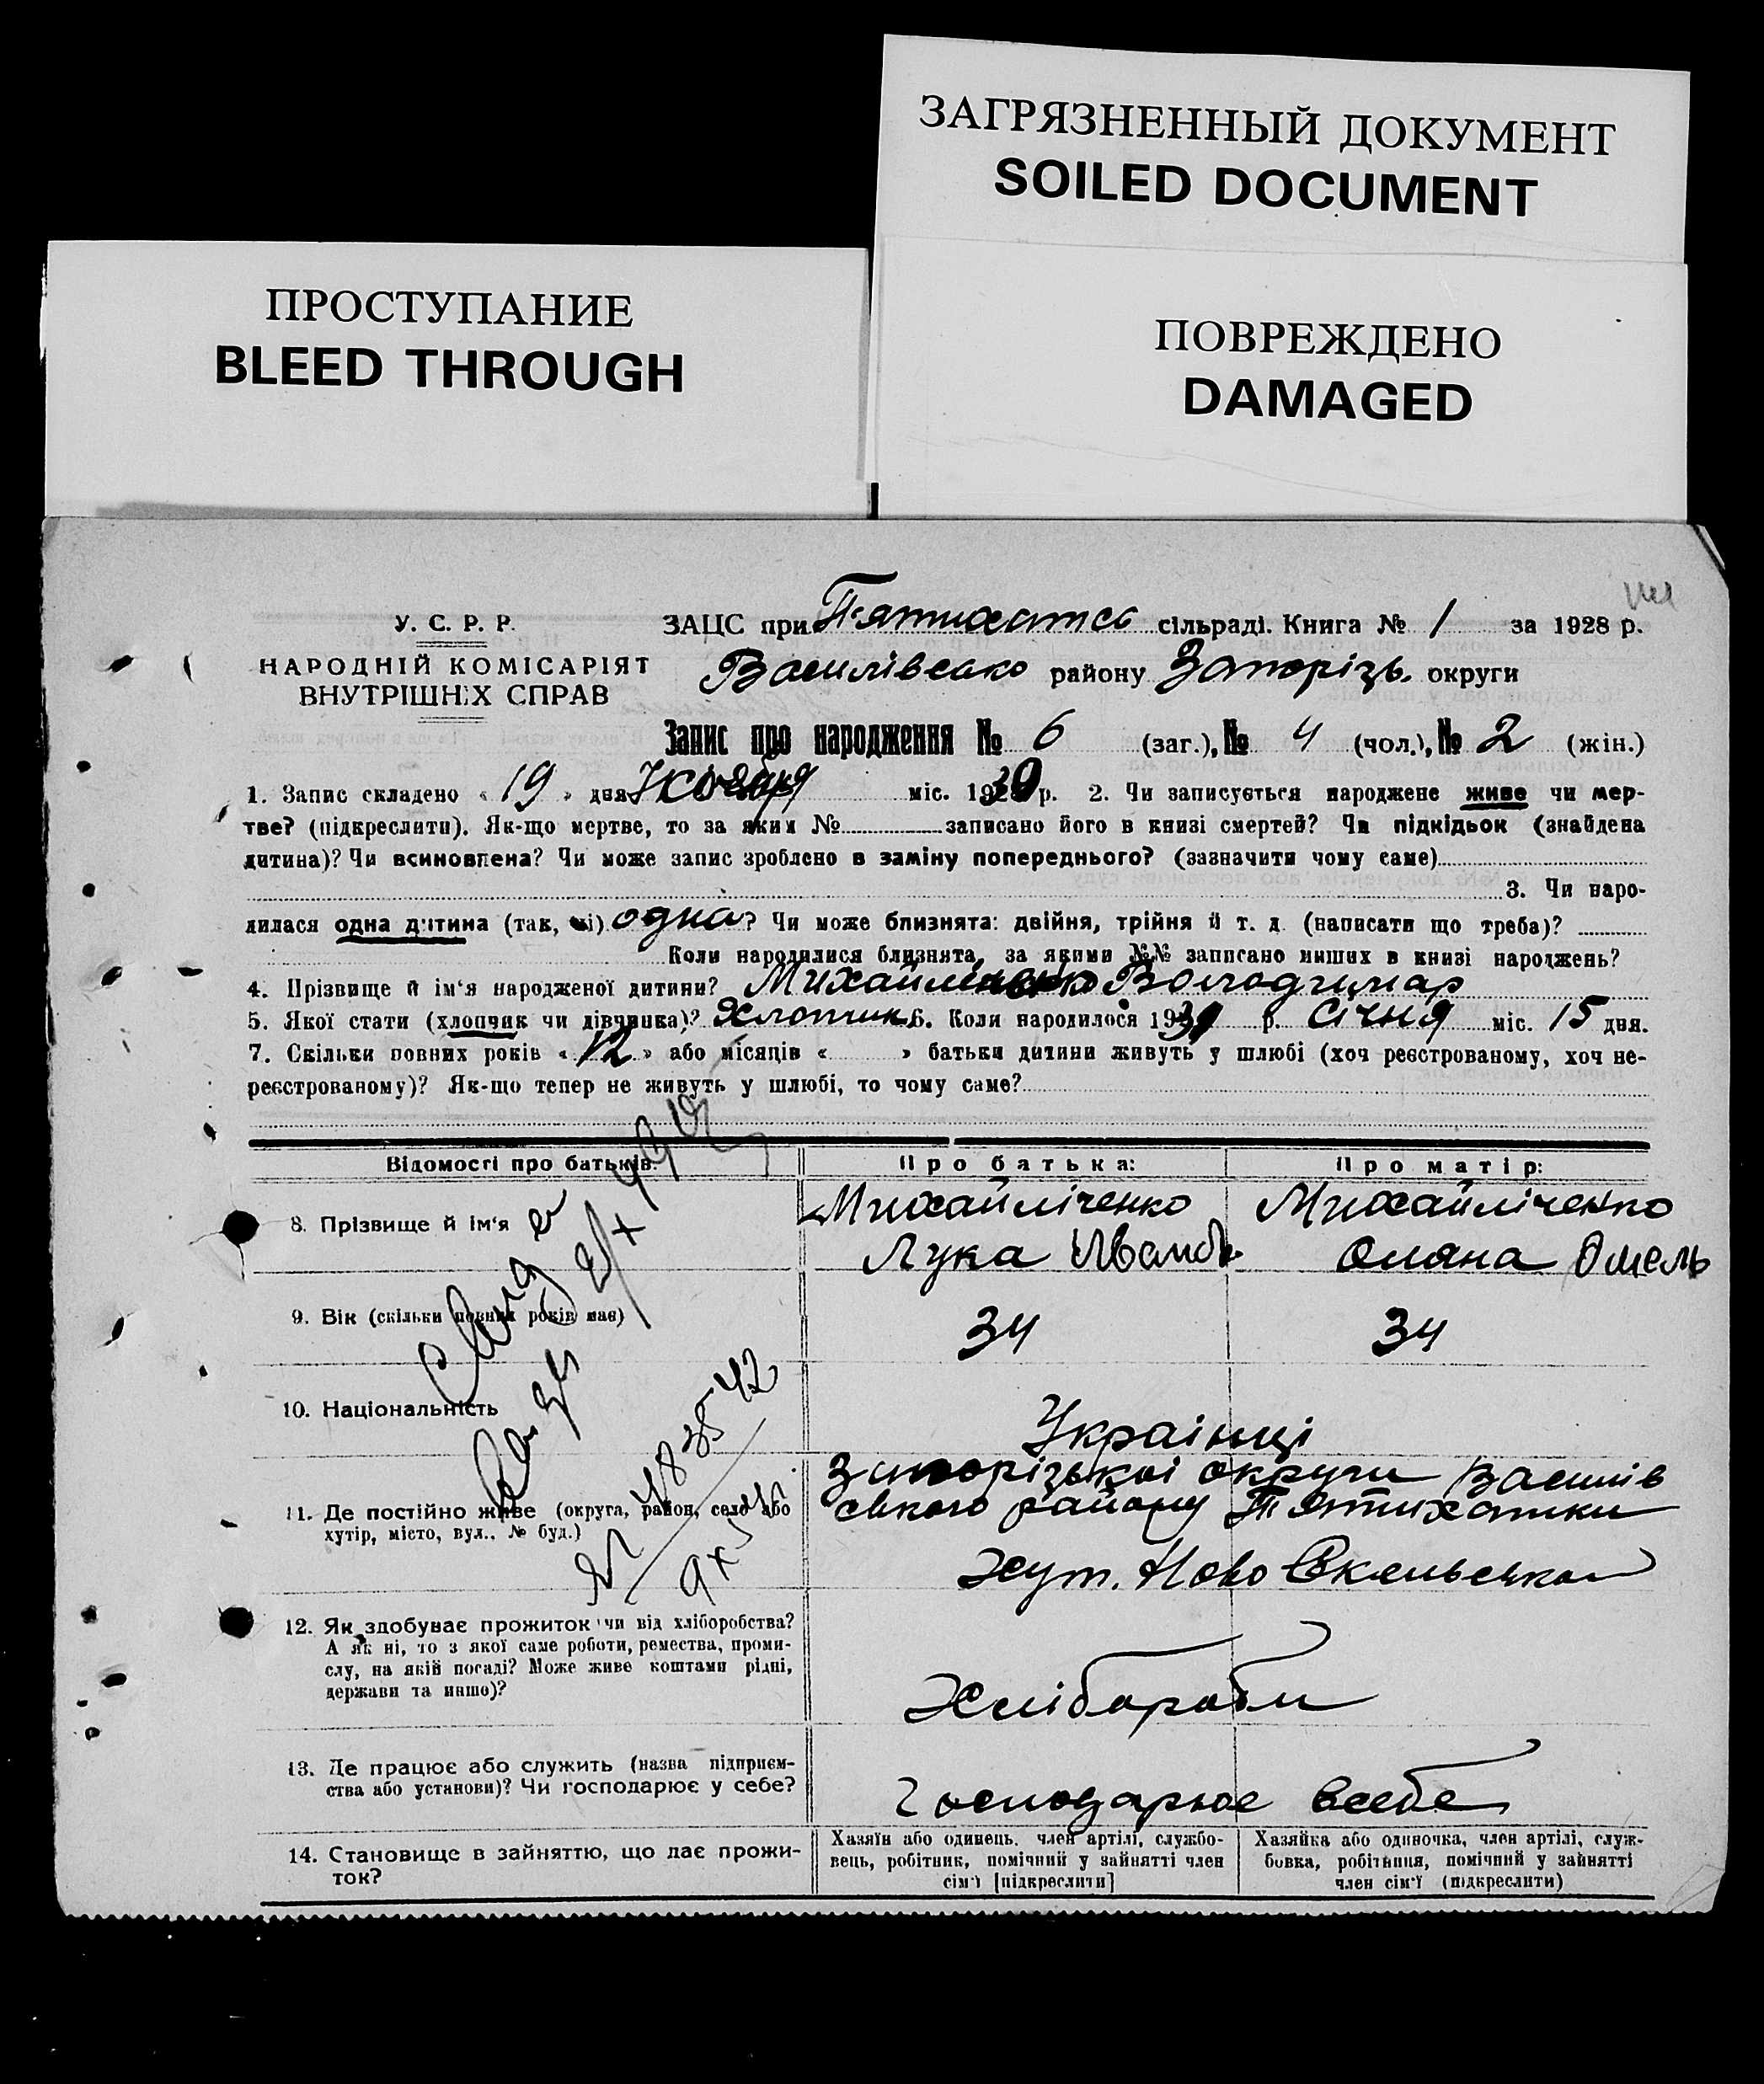 ЗАГРЯЗНЕННЫЙ ДОКУМЕНТ
SOILED DOCUMENT
ПРОСТУПАНИЕ
BLEED THROUGH
ПОВРЕЖДЕНО
DAMAGED
У. С. Р. Р.
НАРОДНІЙ КОМІСАРІЯТ
ВНУТРІШНІХ СПРАВ
ЗАЦС при П'ятихатсь сільраді. Книга № 1 за 1928 р.
Василівсько району Запорізь. округи
Запис про народження № 6 (заг.), № 4 (чол.), № 2 (жін.)
1. Запис складено « 19 » дня міс. 19 р. 2. Чи записується народжене живе чи мер-
тве? (підкреслити). Як-що мертве, то за яким № записано його в книзі смертей? Чи підкідьок (знайдена
дитина)? Чи всиновлена? Чи може запис зроблено в заміну попереднього? (зазначити чому саме)
3. Чи наро-
дилася одна дитина (так, ні) одна? Чи може близнята: двійня, трійня й т. д. (написати що треба)?
Коли народилися близнята, за якими №№ записано инших в книзі народжень?
4. Прізвище й ім'я народженої дитини? Михайличенко Володимар
5. Якої стати (хлопчик чи дівчинка)? Хлопчик 6. Коли народилося 19 р. Січня міс. 15 дня.
7. Скільки повних років « 12 » або місяців « » батьки дитини живуть у шлюбі (хоч реєстрованому, хоч не-
реєстрованому)? Як-що тепер не живуть у шлюбі, то чому саме?
Відомості про батьків: Про батька: Про матір:
8. Прізвище й ім'я Михайліченко Михайліченко
Лука Іванов Оляна Омель
9. Вік (скільки повних років має) 34 34
10. Національність Українці
11. Де постійно живе (округа, район, село або
хутір, місто, вул., № буд.)
Запорізькоі округи Василів
ського району П'ятихатки
Хут. Ново
12. Як здобуває прожиток чи від хліборобства?
А як ні, то з якої саме роботи, ремества, проми-
слу, на якій посаді? Може живе коштами рідні,
держави та инше)?
Хлібороби
13. Де працює або служить (назва підприєм-
ства або установи)? Чи господарює у себе?
Господарює всебе
14. Становище в зайняттю, що дає прожи-
ток?
Хазяїн або одинець, член артілі, службо-
вець, робітник, помічний у зайнятті член
сім'ї [підкреслити]
Хазяйка або одиночка, член артілі, служ-
бовка, робітниця, помічний у зайнятті
член сім'ї (підкреслити)